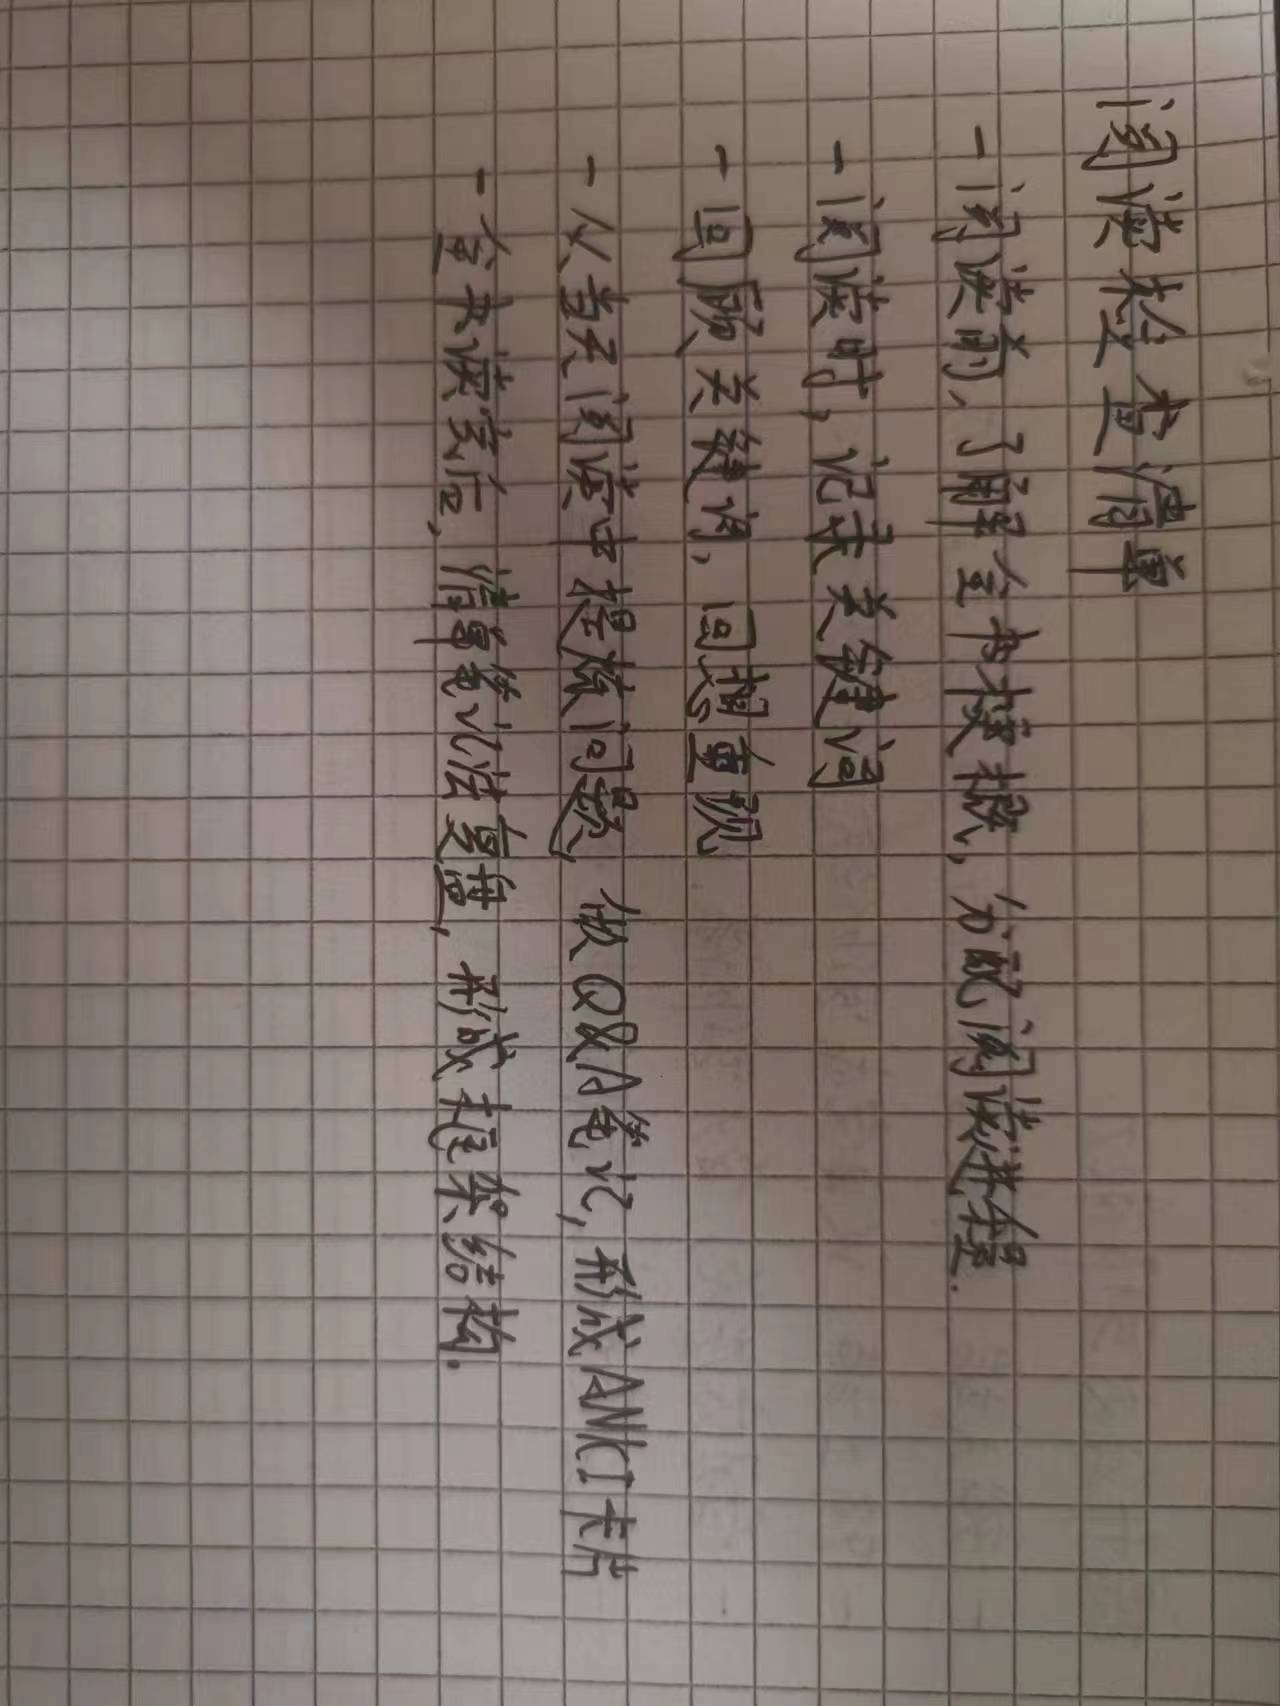 阅读检查清单
- 阅读前,了解全书梗概,分配阅读进程.
- 阅读时,记录关键词
- 回顾关键词,回想重现
- 从当天阅读中提核问题,做Q&A笔记,形成ANKI卡片
- 全书读完后,借笔记法复盘,形成框架结构.